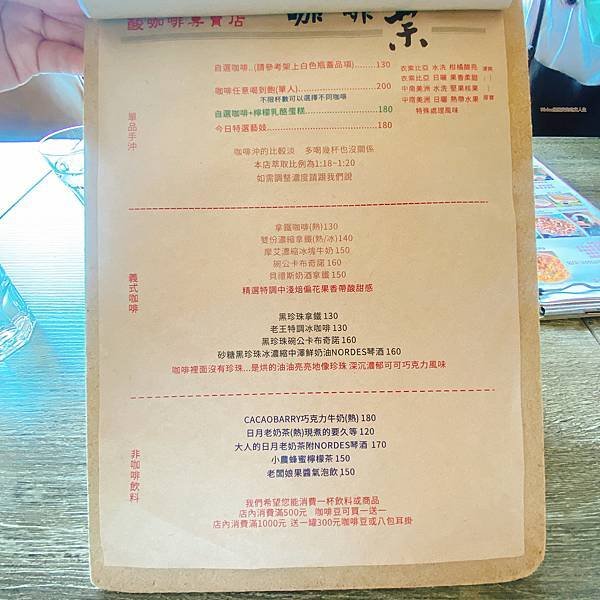 酸咖啡專賣店
咖啡
自選咖啡..(請參考架上白色瓶蓋品項).........130
咖啡任意喝到飽(單人)....................200
不限杯數可以選擇不同咖啡
自選咖啡+檸檬乳酪蛋糕..................180
今日特選藝妓..............................180
衣索比亞 水洗 柑橘酸亮
衣索比亞 日曬 果香柔甜
中南美洲 水洗 堅果核果
中南美洲 日曬 熱帶水果
特殊處理風味
單品手沖
咖啡沖的比較淡 多喝幾杯也沒關係
本店萃取比例為1:18~1:20
如需調整濃度請跟我們說
義式咖啡
拿鐵咖啡(熱)130
雙份濃縮拿鐵(熱/冰)140
摩艾濃縮冰塊牛奶 150
碗公卡布奇諾 160
貝禮斯奶酒拿鐵 150
精選特調中淺焙偏花果香帶酸甜感
黑珍珠拿鐵 130
老王特調冰咖啡 130
黑珍珠碗公卡布奇諾 160
砂糖黑珍珠冰濃縮中澤鮮奶油NORDES琴酒 160
咖啡裡面沒有珍珠...是烘的油油亮亮地像珍珠 深沉濃郁可可巧克力風味
非咖啡飲料
CACAOBARRY巧克力牛奶(熱) 180
日月老奶茶(熱)現煮的要久等 120
大人的日月老奶茶附NORDES琴酒 170
小農蜂蜜檸檬茶 150
老闆娘果醬氣泡飲 150
我們希望您能消費一杯飲料或商品
店內消費滿500元 咖啡豆可買一送一
店內消費滿1000元 送一罐300元咖啡豆或八包耳掛